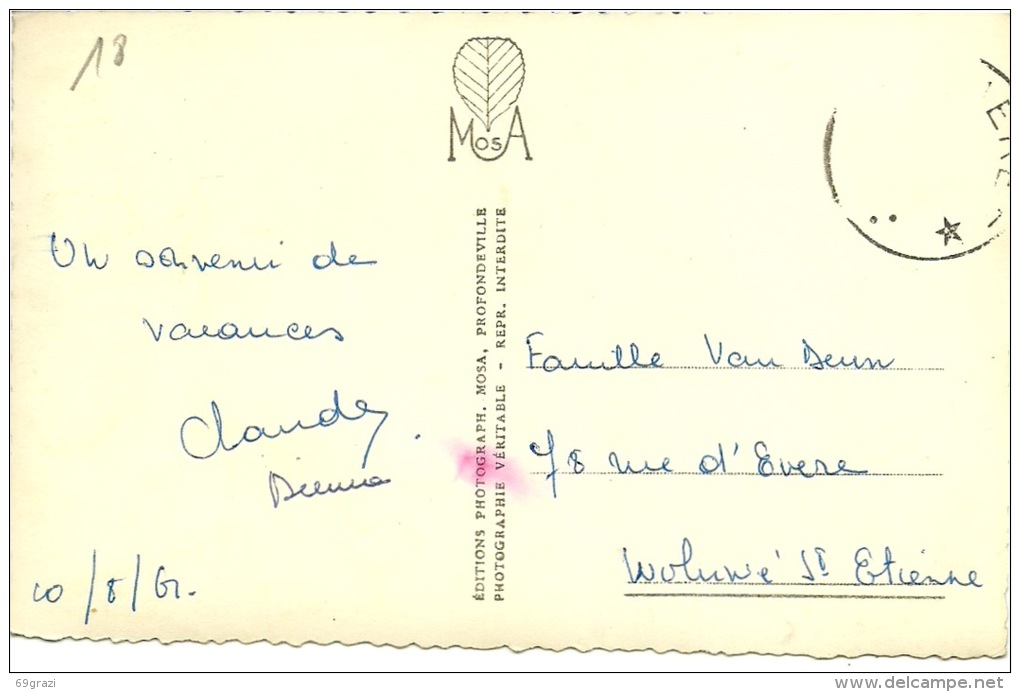 18
MosA
Un souvenir de
vacances
Claude
10/8/61.
ÉDITIONS PHOTOGRAPH. MOSA, PROFONDEVILLE
PHOTOGRAPHIE VÉRITABLE - REPR. INTERDITE
Famille Van Deun
78 rue d'Evere
Woluwé St Etienne
69grazi
www.delcampe.net